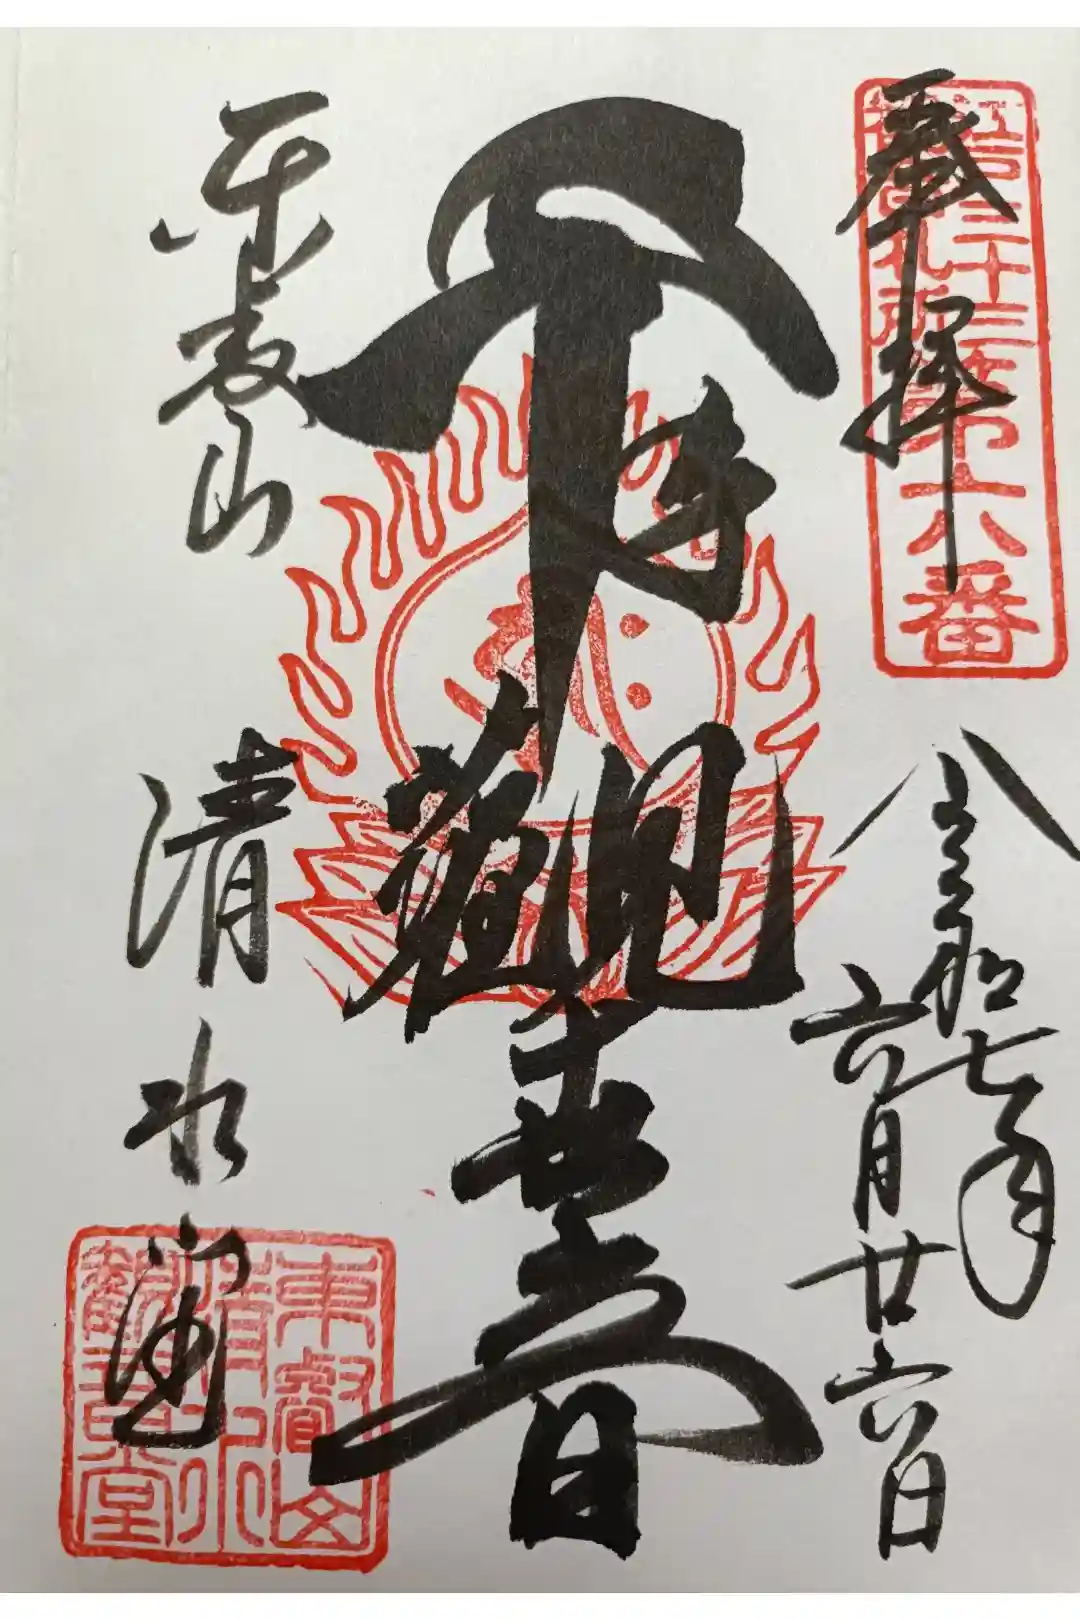 奉拝
江戸三十三
札所
第六番
令和七年
六月廿六日
千手觀世音
東叡山
清水堂
東叡山
清水
觀音堂